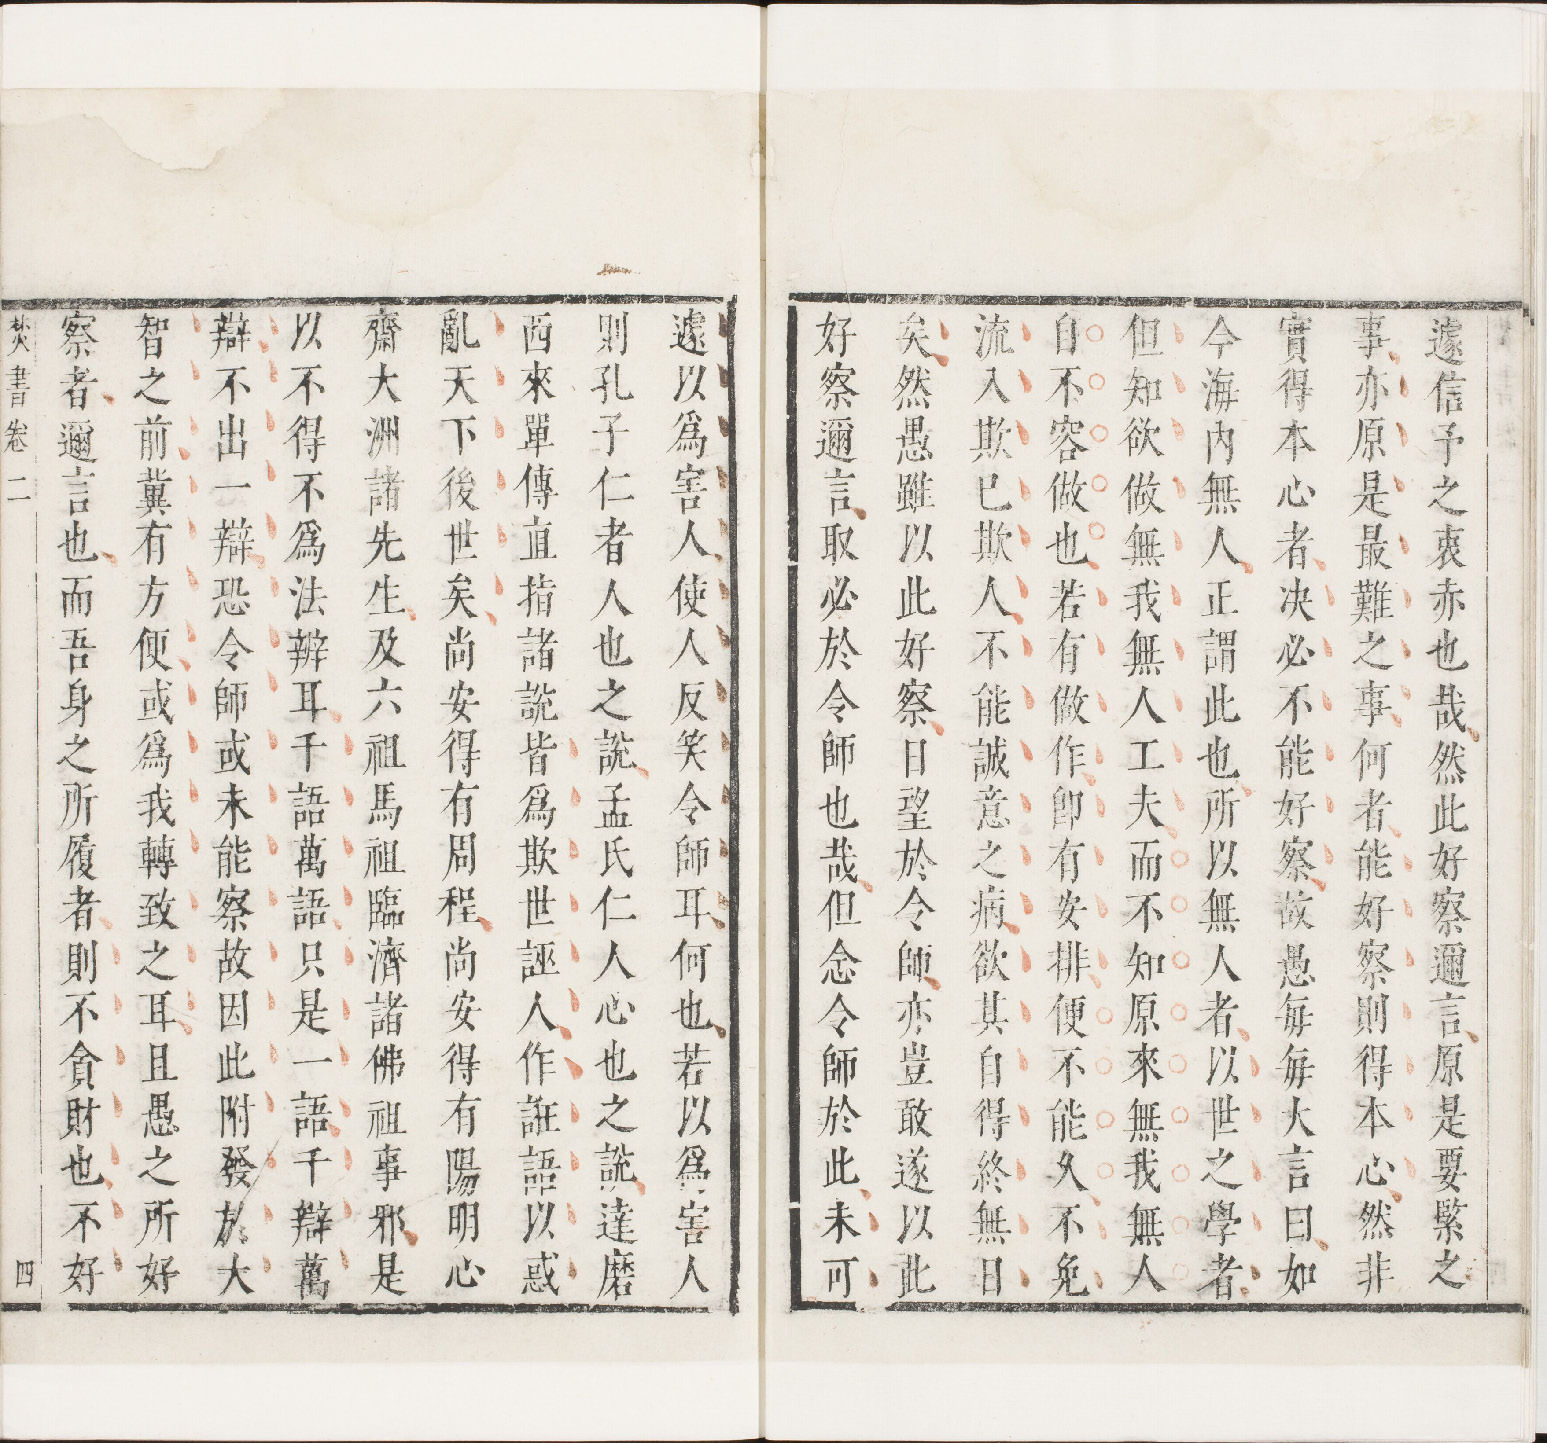 遽信予之衷赤也哉然此好察邇言原是要緊之
事亦原是最難之事何者能好察則得本心然非
實得本心者决必不能好察故愚每每大言曰如
今海内無人正謂此也所以無人者以世之學者
但知欲做無我無人工夫而不知原來無我無人
自不容做也若有做作卽有安排便不能久不免
流入欺已欺人不能誠意之病欲其自得終無日
矣然愚雖以此好察日望於令師亦豈敢遂以此
好察邇言取必於令師也哉但念令師於此未可
遽以爲害人使人反笑令師耳何也若以爲害人
則孔子仁者人也之說孟氏仁人心也之說達磨
西來單傳直指諸說皆爲欺世誣人作誑語以惑
亂天下後世矣尚安得有周程尚安得有陽明心
齋大洲諸先生及六祖馬祖臨濟諸佛祖事邪是
以不得不爲法辨耳千語萬語只是一語千辯萬
辯不出一辯恐令師或未能察故因此附發於大
智之前冀有方便或爲我轉致之耳且愚之所好
察者邇言也而吾身之所履者則不貪財也不好
焚書卷二
四